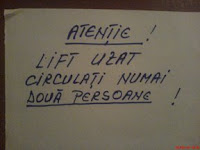 ATENȚIE !
LIFT UZAT
CIRCULAȚI NUMAI
DOUĂ PERSOANE !